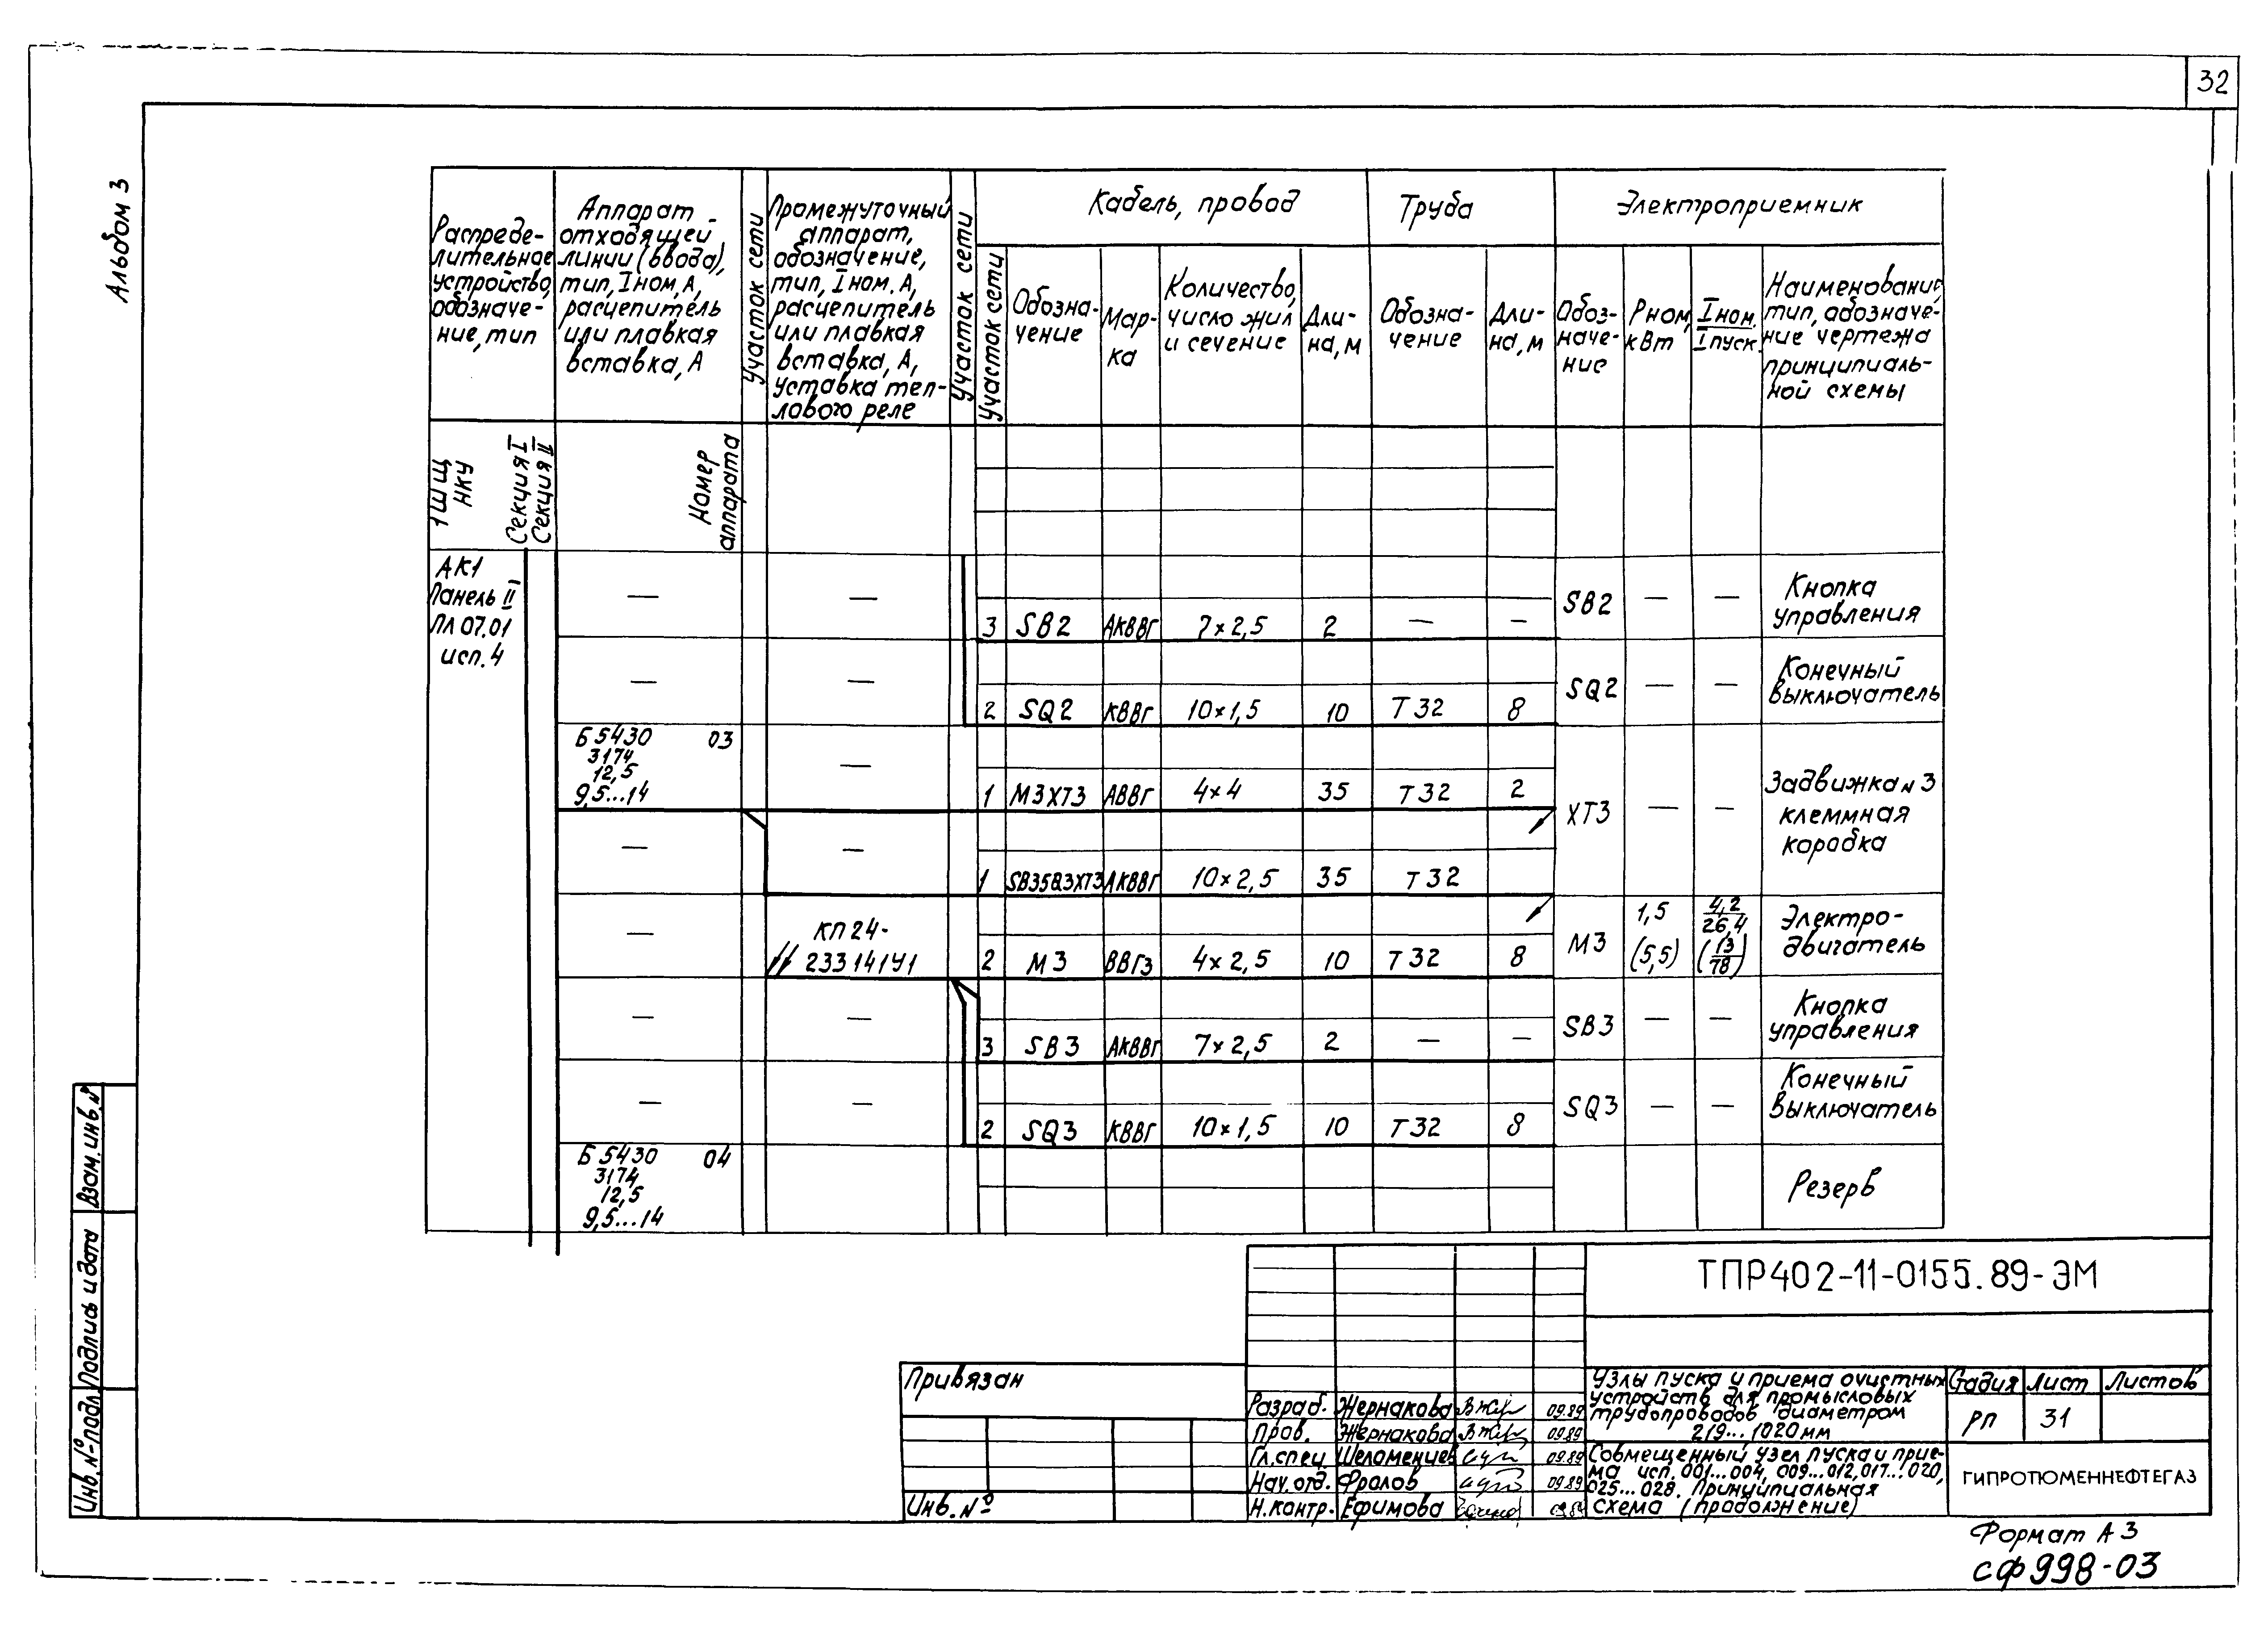 32
Альбом 3
Распреде-
лительное
устройство,
обозначе-
ние, тип
Аппарат
отходящей
линии (ввода),
тип, Iном, А,
расцепитель
или плавкая
вставка, А
Участок сети
Промежуточный
аппарат,
обозначение,
тип, Iном. А,
расцепитель
или плавкая
вставка, А,
уставка теп-
лового реле
Участок сети
Кабель, провод
Труба
Электроприемник
Участок сети
Обозна-
чение
Мар-
ка
Количество,
число жил
и сечение
Дли-
на, м
Обозна-
чение
Дли-
на, м
Обоз-
наче-
ние
Рном,
кВт
Iном.
Iпуск.
Наименование,
тип, обозначе-
ние чертежа
принципиаль-
ной схемы
1ШЩ
НКУ
Секция I
Секция II
Номер
аппарата
АК1
Панель II
ПЛ 07.01
исп. 4
— — 3 SB2 АКВВГ 7×2,5 2 — — SB2 — — Кнопка
управления
— — 2 SQ2 КВВГ 10×1,5 10 Т32 8 SQ2 — — Конечный
выключатель
Б5430 03
3174
12,5
9,5...14
— 1 М3ХТ3 АВВГ 4×4 35 Т32 2
ХТ3 — — Задвижка N3
клеммная
коробка
— — 1 АКВВГ 10×2,5 35 Т32
— КП24-
233141У1
2 М3 ВВГз 4×2,5 10 Т32 8 М3
1,5
(5,5)
4,2
26,4
(13
78)
Электро-
двигатель
— — 3 SB3 АКВВГ 7×2,5 2 — — SB3 — — Кнопка
управления
— — 2 SQ3 КВВГ 10×1,5 10 Т32 8 SQ3 — — Конечный
выключатель
Б5430 04
3174
12,5
9,5...14
Резерв
Взам. инв. №
Подпись и дата
Инв. № подл.
ТПР402-11-0155.89-ЭМ
Привязан
Инв. №
Разраб. Жернакова 09.89
Пров. Жернакова 09.89
Гл.спец. Шеломенцев 09.89
Нач. отд. Фролов 09.89
Н.контр. Ефимова 09.89
Узлы пуска и приема очистных
устройств для промысловых
трубопроводов диаметром
219...1020мм
Стадия Лист Листов
РП 31
Совмещенный узел пуска и прие-
ма исп. 001...004, 009...012, 017...020,
025...028. Принципиальная
схема (продолжение)
ГИПРОТЮМЕННЕФТЕГАЗ
Формат А3
сф 998-03